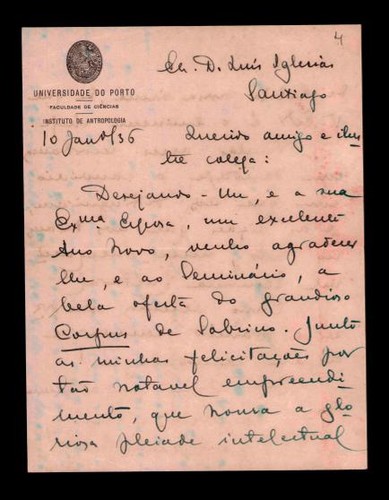 4
Ex. D. Luís Iglesias
Santiago
UNIVERSIDADE DO PORTO
FACULDADE DE CIÊNCIAS
INSTITUTO DE ANTROPOLOGIA
10 Janº/36
Querido amigo e ilus-
tre colega:
Desejando-lhe, e a sua
Exma Esposa, um excelente
Ano Novo, venho agradecer
lhe, e ao Seminário, a
bela oferta do grandioso
Corpus de Sobrino. Junto
as minhas felicitações por
tão notavel empreendi-
mento, que honra a glo-
riosa pleiade intelectual